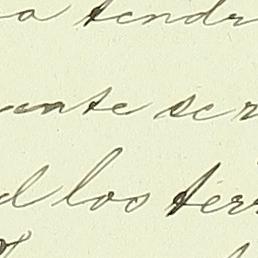 a tendr
ente ser
d los terr